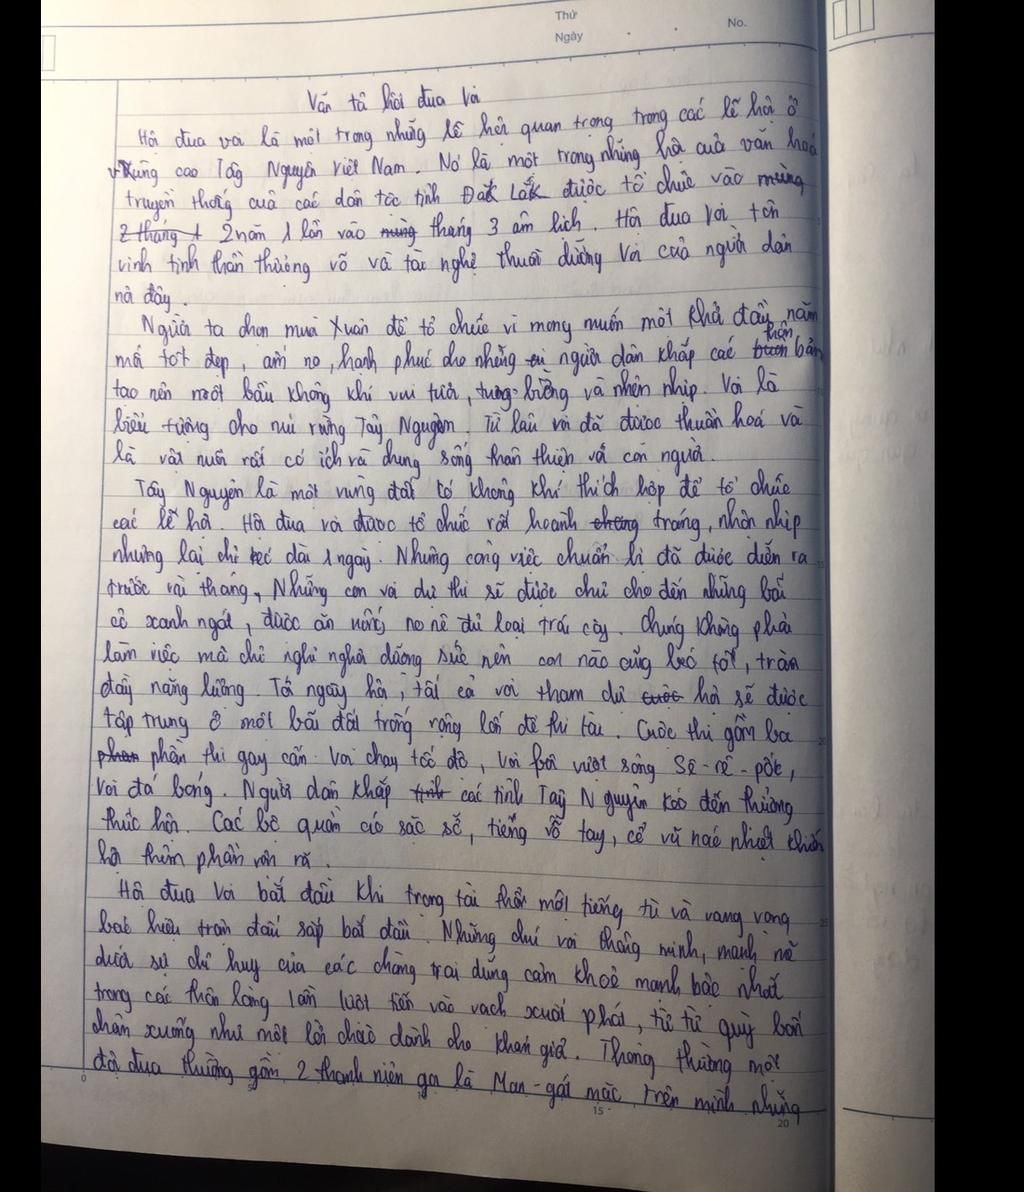 Thứ
No.
Ngày
Văn tả hội đua voi
Hội đua voi là một trong những lễ hội quan trọng trong các lễ hội ở
vùng cao Tây Nguyên Việt Nam. Nó là một trong những hội của văn hoá
truyền thống của các dân tộc tỉnh Đắk Lắk được tổ chức vào mùng
2 tháng 1 2 năm 1 lần vào mùng tháng 3 âm lịch. Hội đua voi tôn
vinh tinh thần thượng võ và tài nghệ thuật dưỡng voi của người dân
nơi đây.
Người ta chọn mùa xuân để tổ chức vì mong muốn một khả đầu năm
mới tốt đẹp, ấm no, hạnh phúc cho những người dân khắp các buôn thôn bản
tạo nên một bầu không khí vui tươi, tưng bừng và nhộn nhịp. Voi là
biểu tượng cho núi rừng Tây Nguyên. Từ lâu voi đã được thuần hoá và
là vật nuôi rất có ích và chung sống thân thiện với con người.
Tây Nguyên là một vùng đất có không khí thích hợp để tổ chức
các lễ hội. Hội đua voi được tổ chức rất hoành chéng tráng, nhộn nhịp
nhưng lại chỉ kéo dài 1 ngày. Những công việc chuẩn bị đã được diễn ra
trước vài tháng, Những con voi dự thi sẽ được chủ cho đến những bãi
cỏ xanh ngát, được ăn uống no nê đủ loại trái cây. Chúng không phải
làm việc mà chỉ nghỉ ngơi dưỡng sức nên con nào cũng béo tốt, tràn
đầy năng lượng. Tới ngày hội, tất cả voi tham dự cuộc hội sẽ được
tập trung ở một bãi đất trống rộng lớn để thi tài. Cuộc thi gồm ba
phan phần thi gay cấn. Voi chạy tốc độ, voi bơi vượt sông Sê-rê-pốk,
voi đá bóng. Người dân khắp tỉnh các tỉnh Tây Nguyên kéo đến thưởng
thức hội. Các bộ quần áo sặc sỡ, tiếng vỗ tay, cổ vũ náo nhiệt khiến
hội thêm phần rôn rã.
Hội đua voi bắt đầu khi trọng tài thổi một tiếng tù và vang vọng
báo hiệu trận đấu sắp bắt đầu. Những chú voi thông minh, mạnh mẽ
dưới sự chỉ huy của các chàng trai dũng cảm khoẻ mạnh bậc nhất
trong các thôn làng lần lượt tiến vào vạch xuất phát, từ từ quỳ bốn
chân xuống như một lời chào dành cho khán giả. Thông thường một
đội đua thường gồm 2 thanh niên gọi là Man-gát mặc trên mình những
0
5
10
15
20